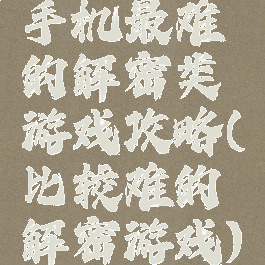 手机最难
的解密类
游戏攻略(
比较难的
解密游戏)